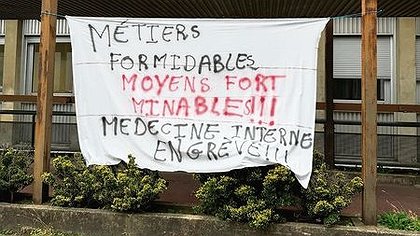 MÉTIERS
FORMIDABLES
MOYENS FORT
MINABLES!!!
MEDECINE INTERNE
EN GRÈVE!!!